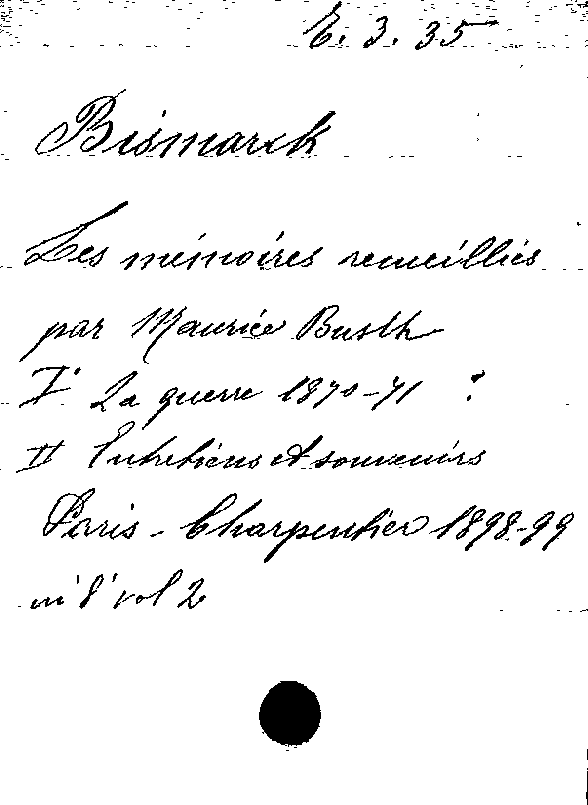 E. 3. 35
Bismarck
Les mémoires recueillies
par Maurice Busch
I° La guerre 1870-71 ?
II Entretiens et souvenirs
Paris - Charpentier 1898-99
in 8° vol 2